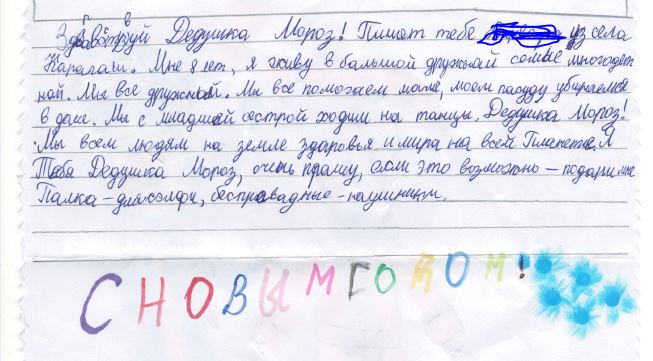 Здравствуй Дедушка Мороз! Пишет тебе из села
Карагаш. Мне 8 лет, я живу в большой дружной семье многодет
ной. Мы все дружной. Мы все помогаем маме, моем посуду убираемся
в доме. Мы с младшей сестрой ходим на танцы. Дедушка Мороз!
Мы всем людям на земле здоровья и мира на всей Планете. Я
Тебя Дедушка Мороз, очень прашу, если это возможно - подари мне
Палка - для сэлфи, беспровадные - наушники.
С НОВЫМ ГОДОМ!